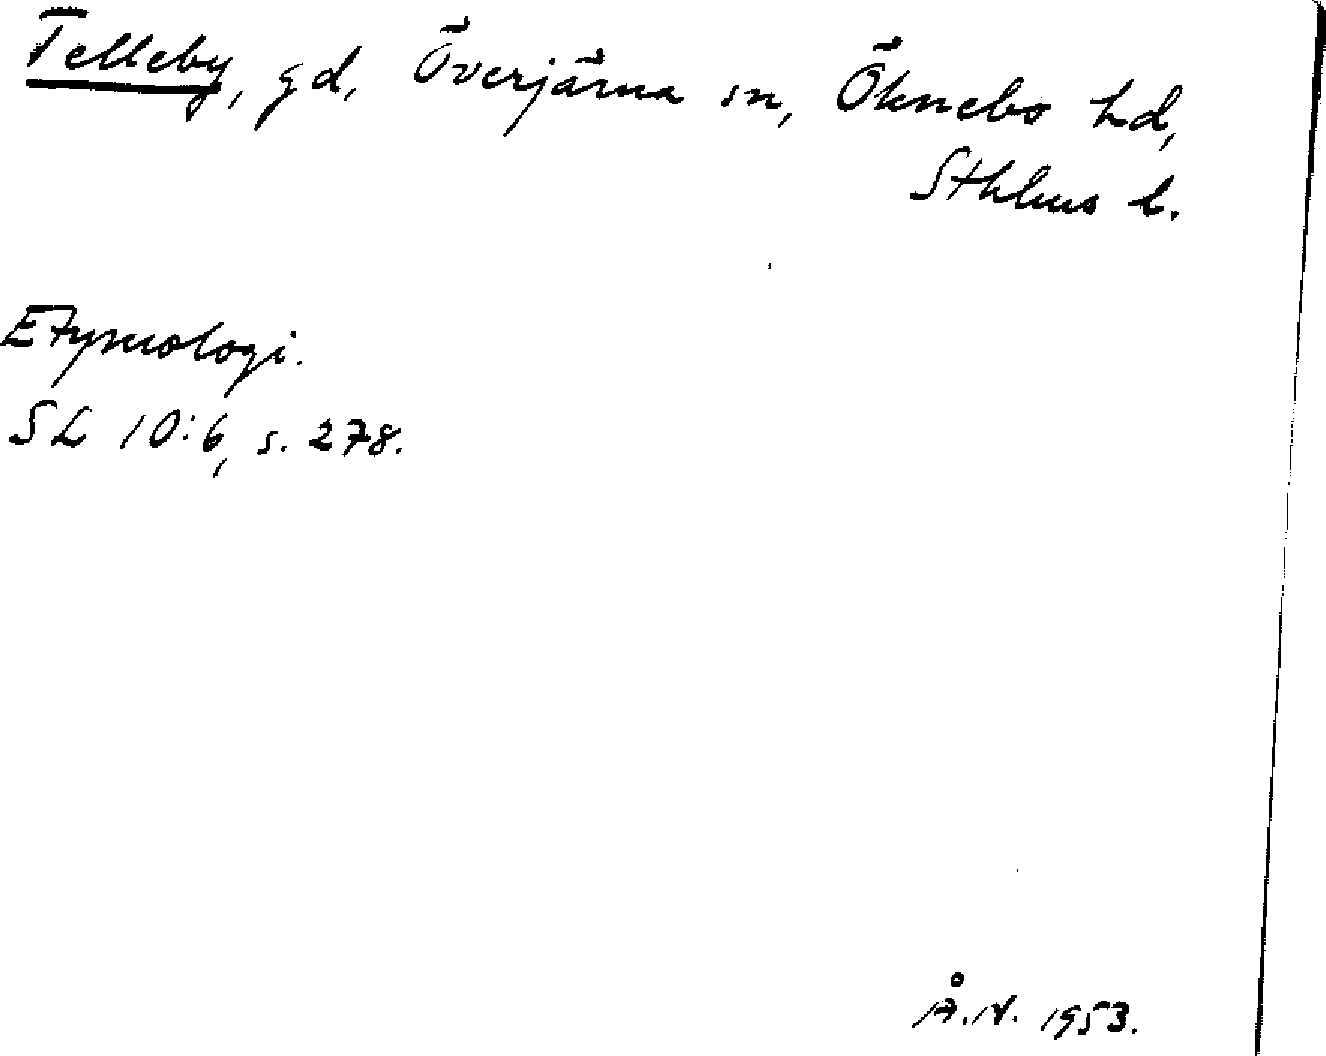 Telleby, gd, Överjärna sn, Öknebo hd,
Sthlms l.
Etymologi.
SL 10:6, s. 278.
Å.N. 1953.